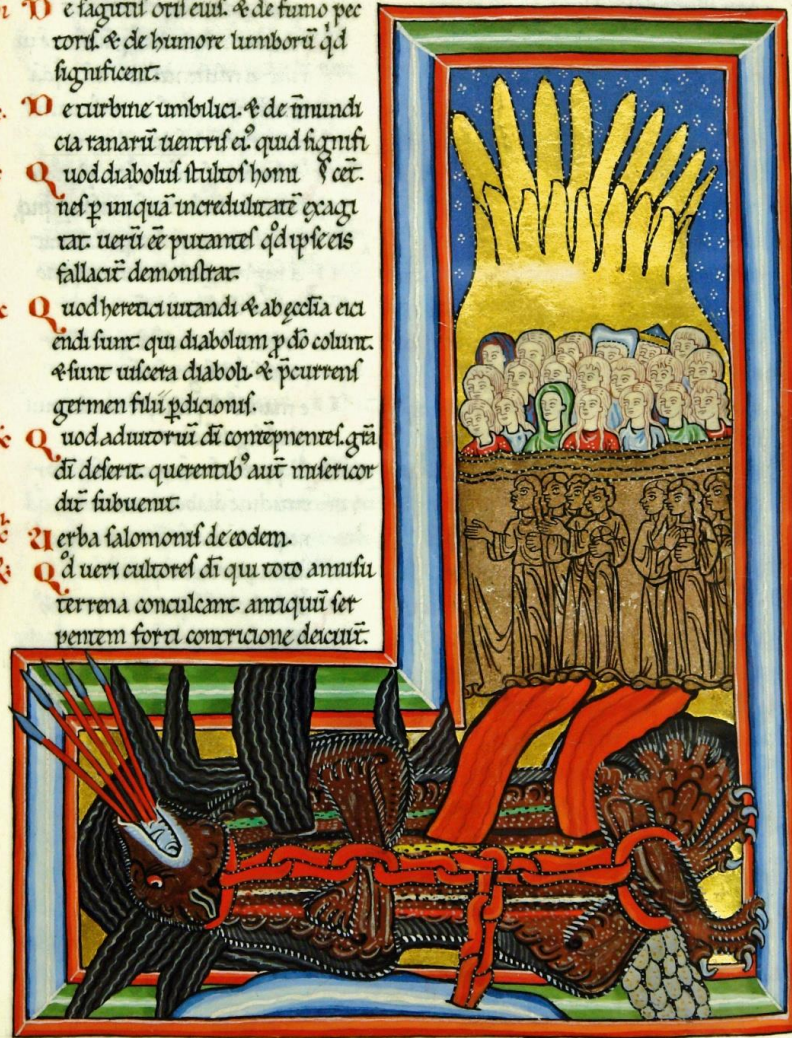 De sagittis oris eius. & de fumo pec
toris. & de humore lumborū qd̓
significent.
De turbine umbilici. & de īmundi
cia ranarū uentris ei⁹ quid signifi
Quod diabolus stultos homi cēt.
nes p̄ uniquā incredulitatē exagi
tat. uerū eē putantes qd̓ ipse eis
fallacit̄ demonstrat.
Quod heretici uitandi & ab ęccl̄ia eici
endi sunt. qui diabolum p̄ dō colunt.
& sunt uiscera diaboli. & p̄currens
germen filii ꝑdicionis.
Quod adiutoriū dī contēpnentes. grā
dī deserit. querentib⁹ aūt misericor
dit̄ subuenit.
Verba salomonis de eodem.
Qd̓ ueri cultores dī qui toto annisu
terrena conculcant. antiquū ser
pentem forti contricione deiciūt.